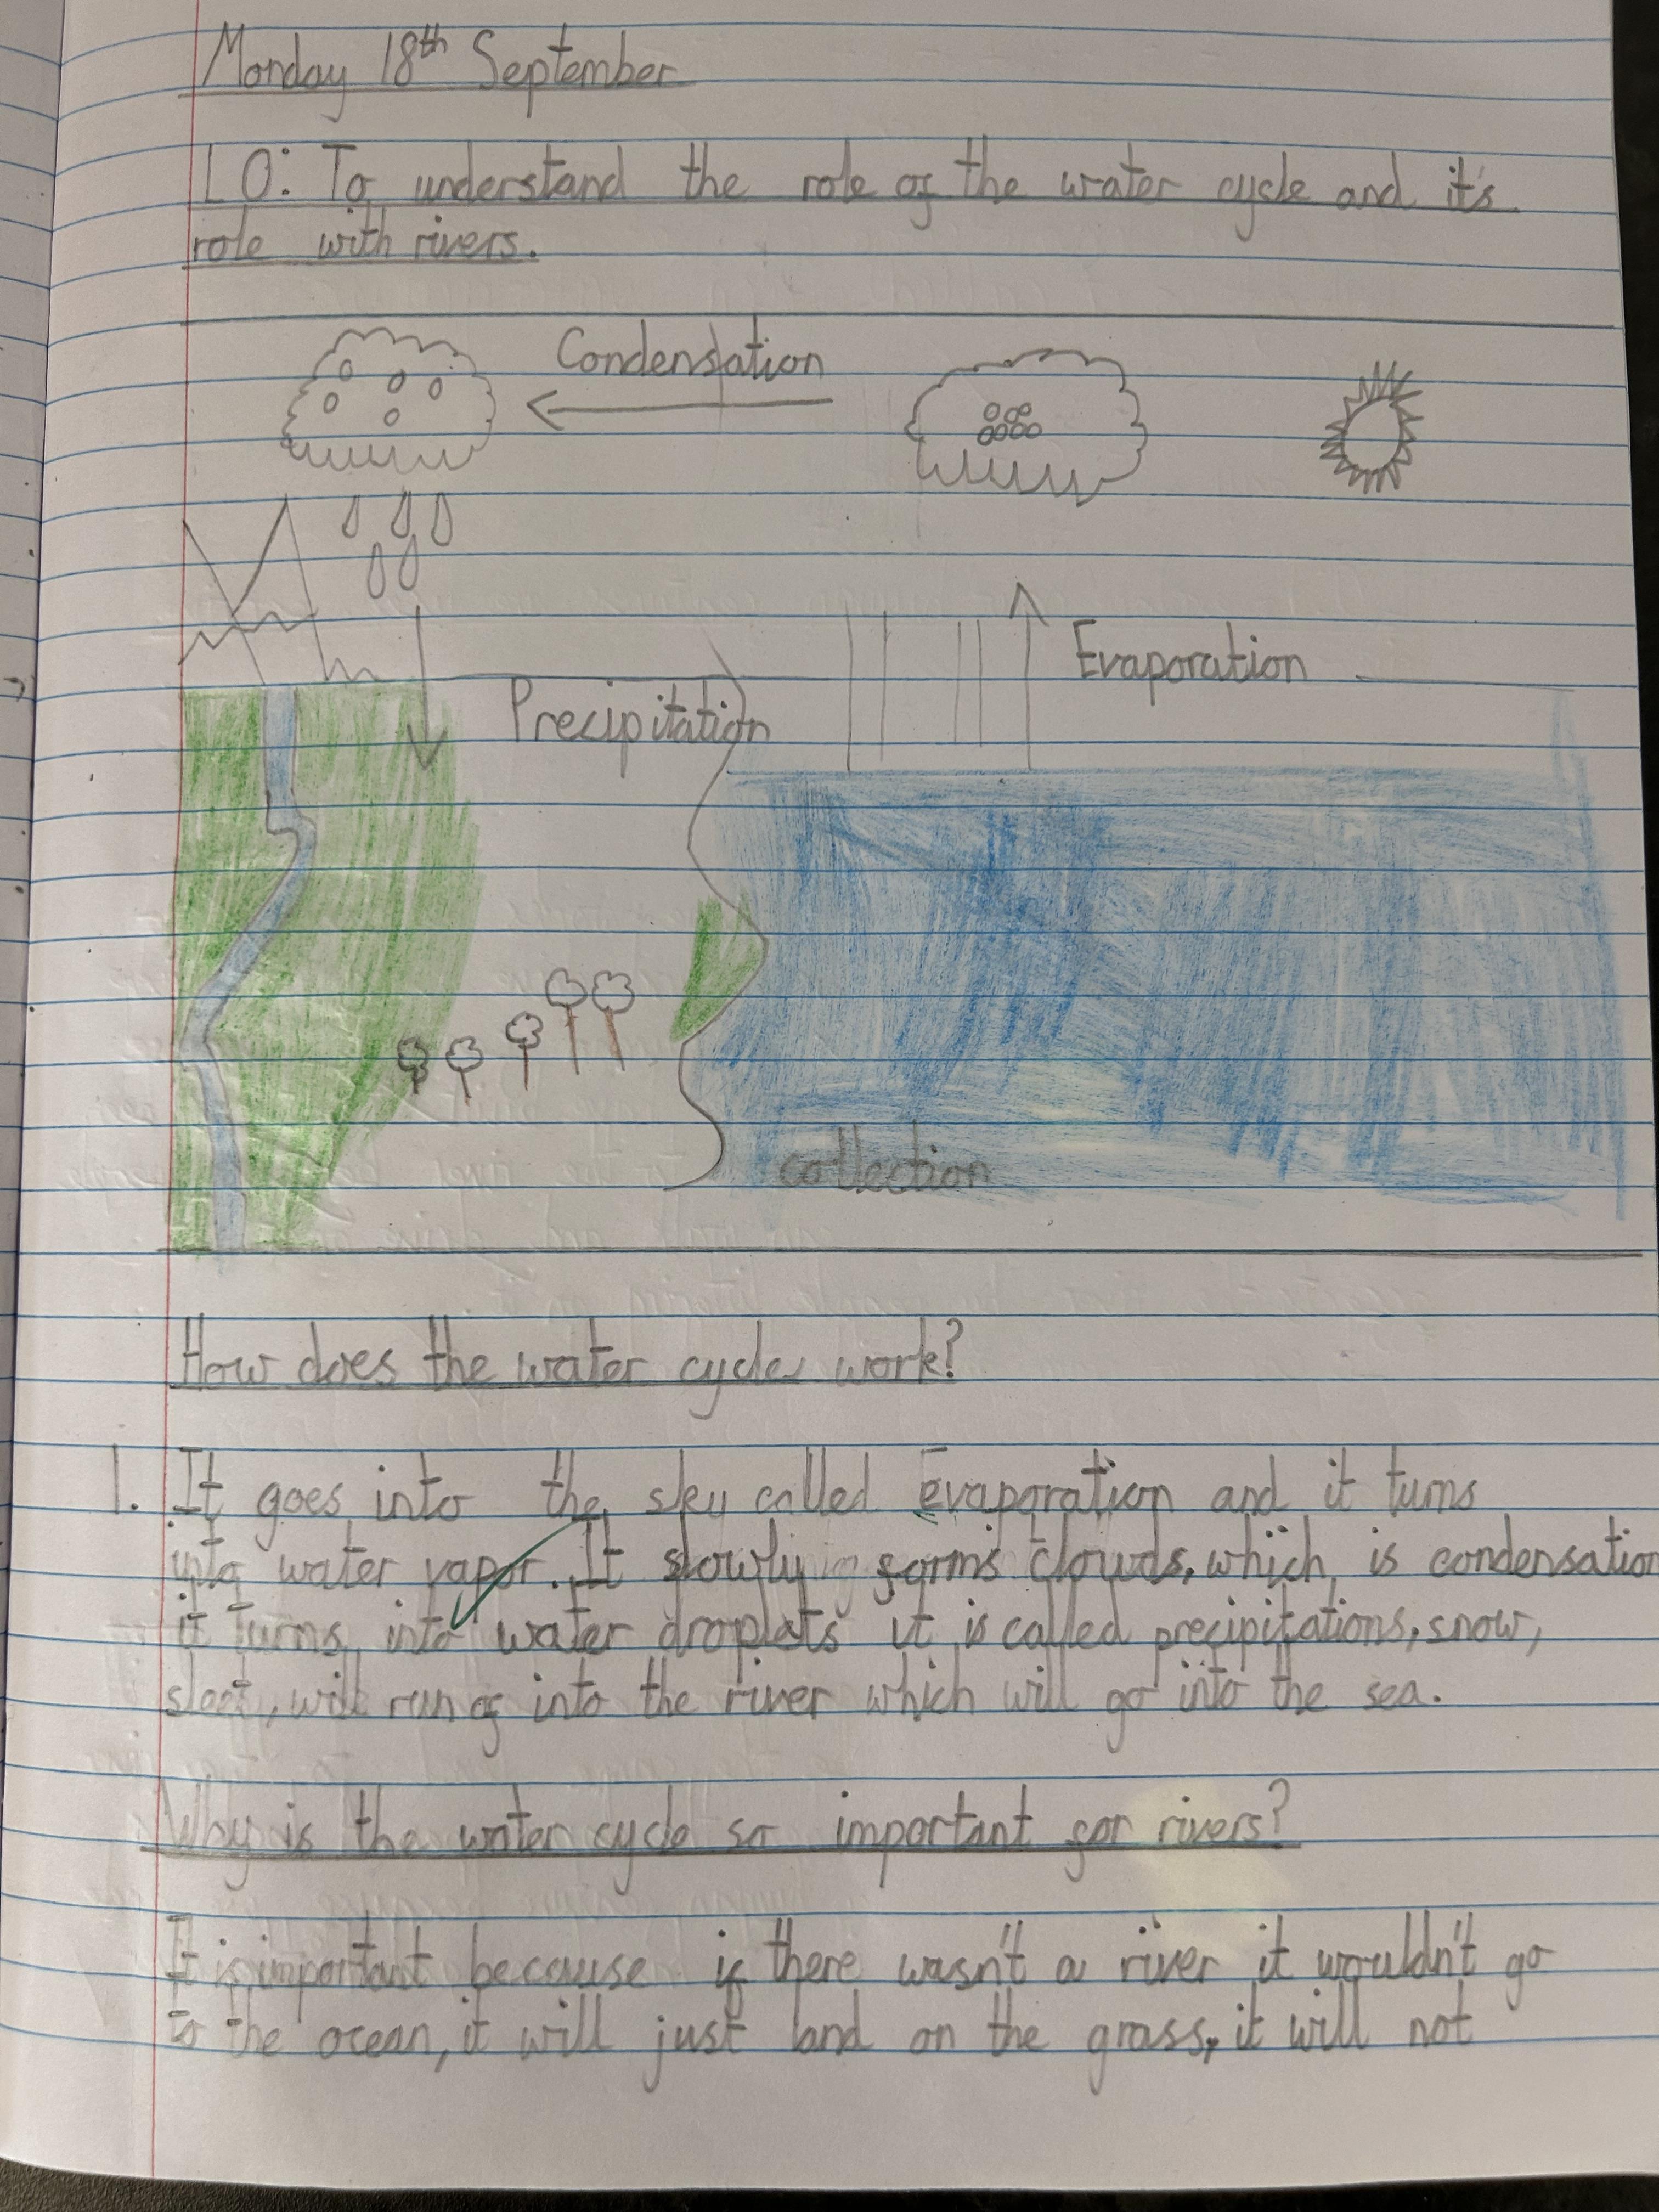 Monday 18th September
LO: To understand the role of the water cycle and it's
role with rivers.
Condensation
Evaporation
Precipitation
collection
How does the water cycle work?
1. It goes into the sky called Evaporation and it turns
into water vapor. It slowly forms clouds, which is condensation
it turns into water droplets it is called precipitations, snow,
sleet, will run of into the river which will go into the sea.
Why is the water cycle so important for rivers?
It is important because if there wasn't a river it wouldn't go
to the ocean, it will just land on the grass, it will not